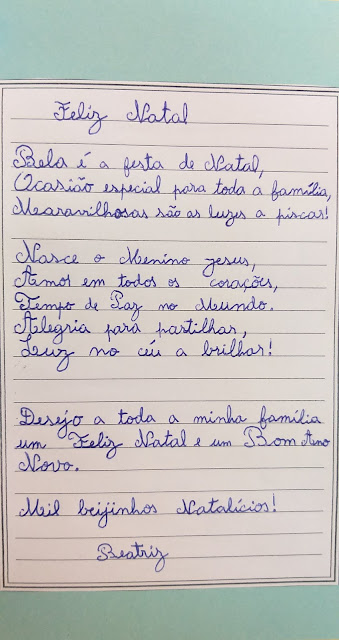 Feliz Natal
Bela é a festa de Natal,
Ocasião especial para toda a família,
Maravilhosas são as luzes a piscar!
Nasce o Menino Jesus,
Amor em todos os corações,
Tempo de Paz no Mundo.
Alegria para partilhar,
Luz no céu a brilhar!
Desejo a toda a minha família
um Feliz Natal e um Bom Ano
Novo.
Mil beijinhos Natalícios!
Beatriz